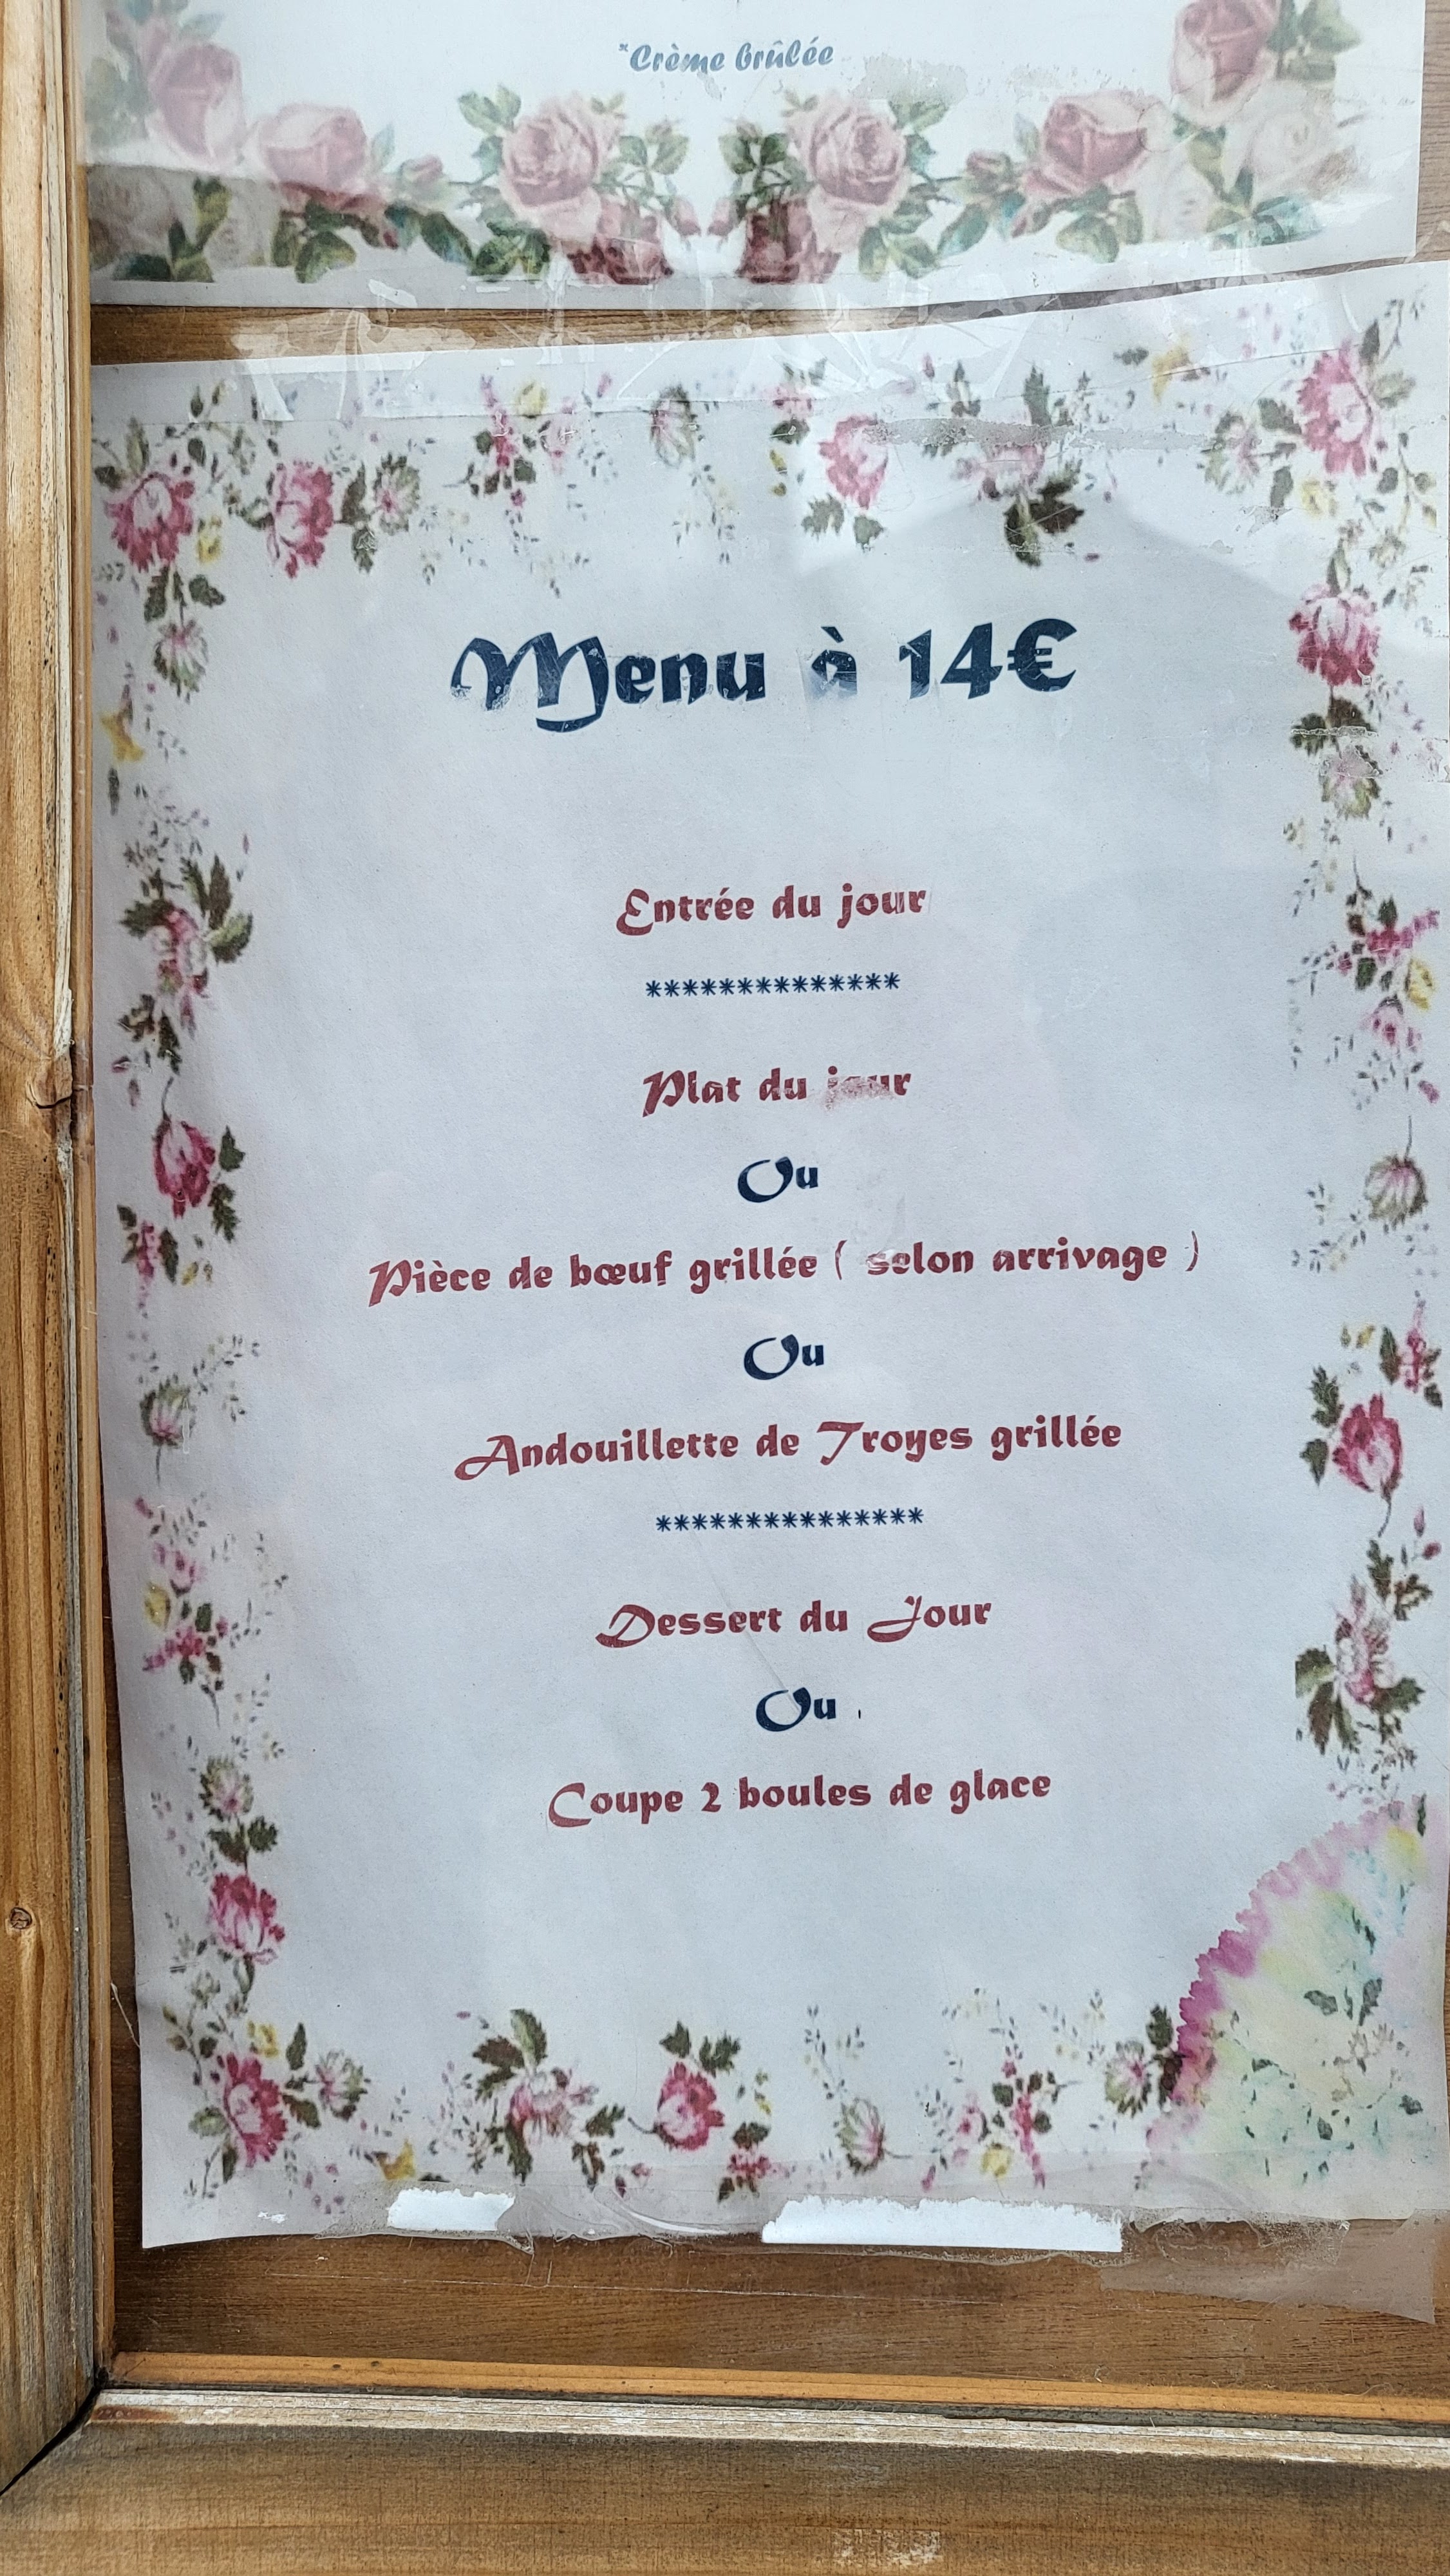 *Crème brûlée
Menu à 14€
Entrée du jour
**************
Plat du jour
Ou
Pièce de bœuf grillée ( selon arrivage )
Ou
Andouillette de Troyes grillée
***************
Dessert du Jour
Ou
Coupe 2 boules de glace